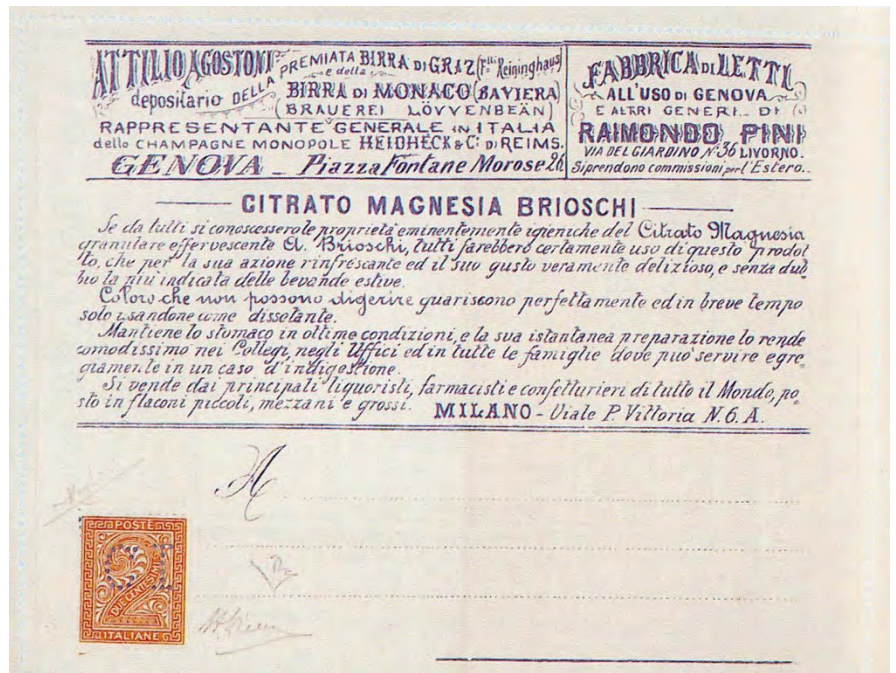 ATTILIO AGOSTONI
depositario DELLA
PREMIATA BIRRA DI GRAZ (F.lli Reininghaus)
e della
BIRRA DI MONACO (BAVIERA)
(BRAUEREI LÖVVENBEÄN)
RAPPRESENTANTE GENERALE IN ITALIA
dello CHAMPAGNE MONOPOLE HEIDHECK & C: DI REIMS.
GENOVA - Piazza Fontane Morose 26
FABBRICA DI LETTI
ALL'USO DI GENOVA
E ALTRI GENERI DI
RAIMONDO PINI
VIA DEL GIARDINO N.º 36 LIVORNO.
Si prendono commissioni per l'Estero.
CITRATO MAGNESIA BRIOSCHI
Se da tutti si conoscessero le proprietà eminentemente igieniche del Citrato Magnesia
granulare effervescente A. Brioschi, tutti farebbero certamente uso di questo prodot
to, che per la sua azione rinfrescante ed il suo gusto veramente delizioso, e senza dub
bio la più indicata delle bevande estive.
Coloro che non possono digerire guariscono perfettamente ed in breve tempo
solo usandone come dissetante.
Mantiene lo stomaco in ottime condizioni, e la sua istantanea preparazione lo rende
comodissimo nei Collegi, negli Uffici ed in tutte le famiglie dove può servire egre
giamente in un caso d'indigestione.
Si vende dai principali liquoristi, farmacisti e confetturieri di tutto il Mondo, po
sto in flaconi piccoli, mezzani e grossi. MILANO - Viale P. Vittoria N. 6. A.
A
POSTE
DUE CENTESIMI
2
ITALIANE